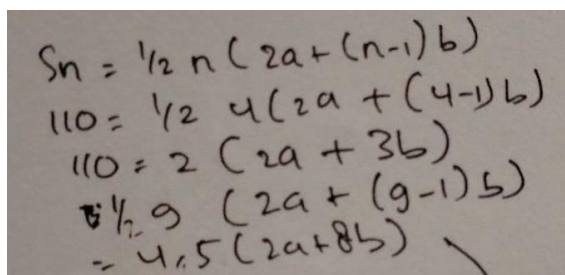 Sn = 1/2 n (2a + (n-1) b)
110 = 1/2 4 (2a + (4-1) b)
110 = 2 (2a + 3b)
1/2 9 (2a + (9-1) b)
= 4,5 (2a + 8b)